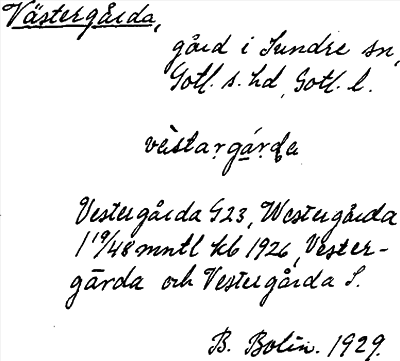 Västergårda,
gård i Sundre sn,
Gotl. s. hd, Gotl. l.
Vestergårda G23, Westergårda
1 19/48 mntl kb 1926, Vester-
gårda och Vestergårda S.
B. Bolin. 1929.